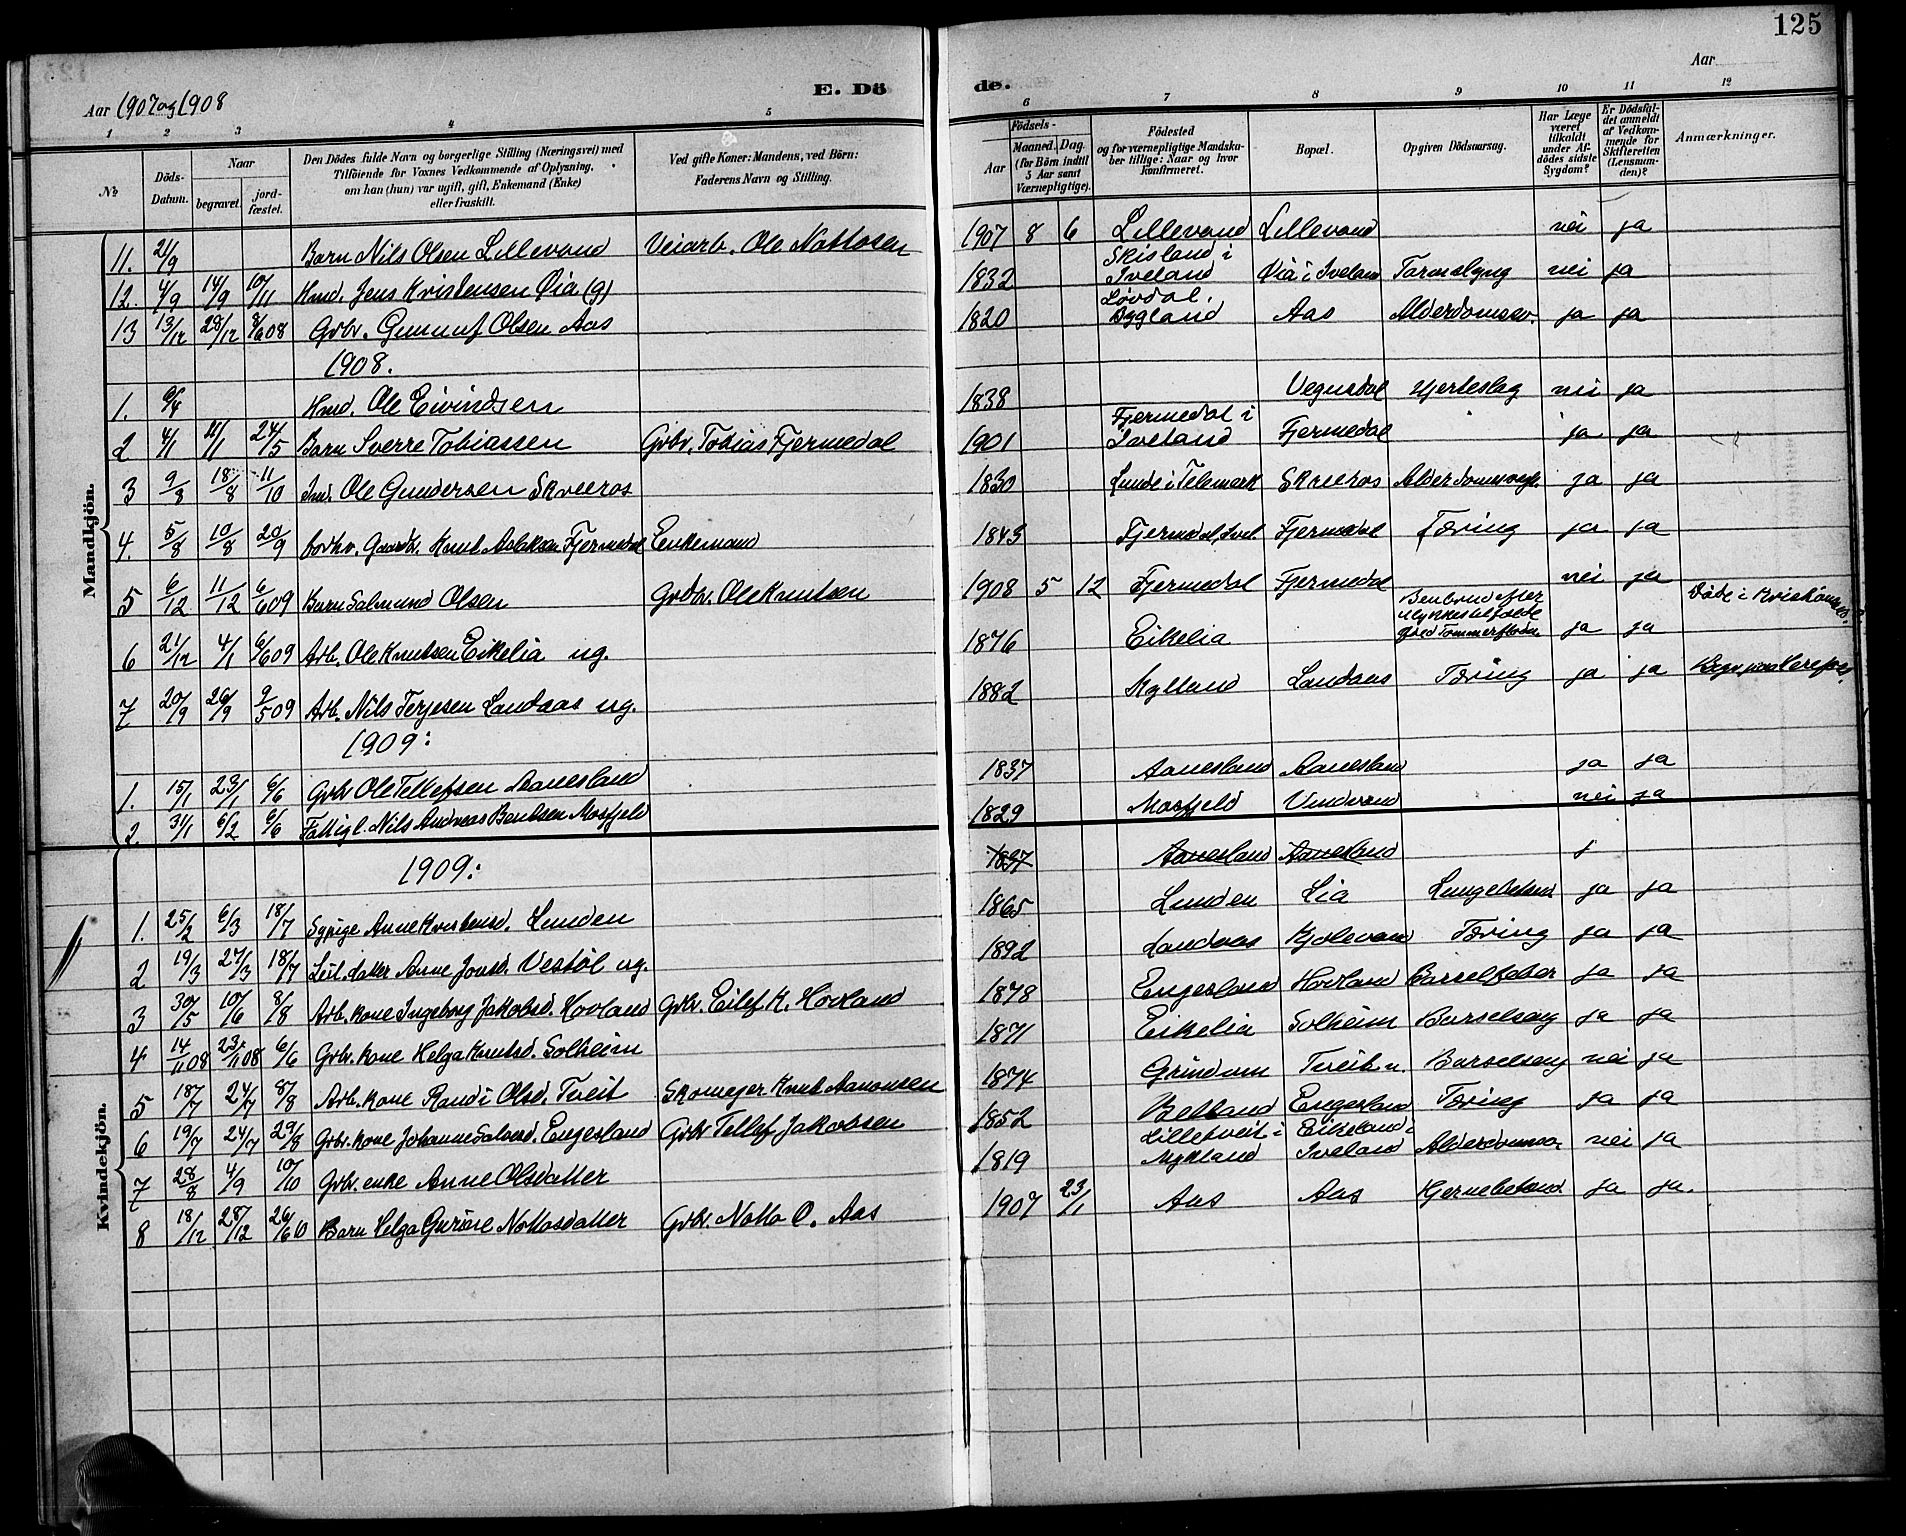 125
Aar 1907 og 1908
E. Dö de.
Aar
1 2 3 4 5 6 7 8 9 10 11 12
№ Döds-Datum. Naar begravet. jord-fæstet. Den Dödes fulde Navn og borgerlige Stilling (Næringsvei) med Tilföiende for Voxnes Vedkommende af Oplysning, om han (hun) var ugift, gift, Enkemand (Enke) eller fraskilt. Ved gifte Koner: Mandens, ved Börn: Faderens Navn og Stilling. Födsels- Aar Maaned. Dag. (for Börn indtil 5 Aar samt Værnepligtige). Födested og for værnepligtige Mandskaber tillige: Naar og hvor konfirmeret. Bopæl. Opgiven Dödsaarsag. Har Læge været tilkaldt under Afdödes sidste Sygdom? Er Dödsfaldet anmeldt af Vedkommende for Skifteretten (Lensmanden)? Anmærkninger.
Mandkjön.
11. 21/9 Barn Nils Olsen Lillevand Veiarb. Ole Nottosen 1907 8 6 Lillevand Lillevand nei ja
12. 4/9 14/9 10/11 Kmd. Jens Kristensen Øia (g) 1832 Skisland i Iveland Øia i Iveland Tarmslyng nei ja
13 13/12 28/12 8/6 08 Grbr. Gunnuf Olsen Aas 1820 Løvdal. Bygland Aas Alderdomssv. ja ja
1908.
1. Kmd. Ole Eivindsen 1838 Vegusdal Hjerteslag nei ja
2 4/1 11/1 24/5 Barn Sverre Tobiassen Grbr. Tobias Fjermedal 1901 Fjermedal i Iveland Fjermedal ja ja
3 9/8 18/8 11/10 Ind. Ole Gundersen Skreros 1830 Lunde i Telemark Skreros ja ja
4. 5/8 10/8 20/9 Gaardbr. Knut Aslaksen Fjermedal Enkemand 1843 Fjermedal, Ivel Fjermedal Tæring ja ja
5 6/12 11/12 6/6 09 Barn Salmund Olsen Grdbr. Ole Knutsen 1908 5 12 Fjermedal Fjermedal nei ja
6 21/12 4/1 6/6 09 Arb. Ole Knutsen Eikelia ug. 1876 Eikelia Benbrud efter ulykkestilfælde ved Tømmerflodn. ja ja Døde i Kristiansand.
7 20/9 26/9 9/5 09 Arb. Nils Terjesen Landaas ug. 1882 Mylland Landaas Tæring ja ja
1909:
1. 15/1 23/1 6/6 Grbr Ole Tellefsen Aanesland 1837 Aanesland Aanesland ja ja
2. 31/1 6/2 6/6 Fattigl. Nils Andreas Berntsen Mosfjeld 1829 Mosfjeld nei ja
Kvindekjön.
1909: 1837 Aanesland Aanesland j
1. 25/2 6/3 18/7 Sypige Anne Kristensd. Lunden 1865 Lunden Lia Lungebetænd. ja ja
2 19/3 27/3 18/7 Leil. datter Anne Jonsd. Vestøl ug. 1892 Landaas Kjolevand Tæring ja ja
3 30/5 10/6 8/8 Arb. kone Ingeborg Jakobsd. Hovland Grbr. Eilef K. Hovland 1878 Engesland Hovland Barselfeber ja ja
4 14/11 08 23/11 08 6/6 Grbr. kone Helga Knutsd. Solheim 1871 Eikelia Solheim Barselseng ja ja
5 18/7 24/7 8/8 Arb. kone Randi Olsd. Tveit Skomager Knut Aanonsen 1874 Grindum Tveit n. Barselseng nei ja
6 19/7 24/7 29/8 Grbr. kone Johanne Salvesd. Engesland Grbr Tellef Jakobsen 1852 Belland Engesland Tæring ja ja
7 28/8 4/9 10/10 Grbr. enke Anne Olsdatter 1819 Lilletveit i Mykland Eikeland i Iveland Alderdomssv. nei ja
8 18/12 28/12 26/6 10 Barn Helga Gurine Nottosdatter Grbr. Notto O. Aas 1907 23/1 Aas Aas Hjernebetænd. ja ja.